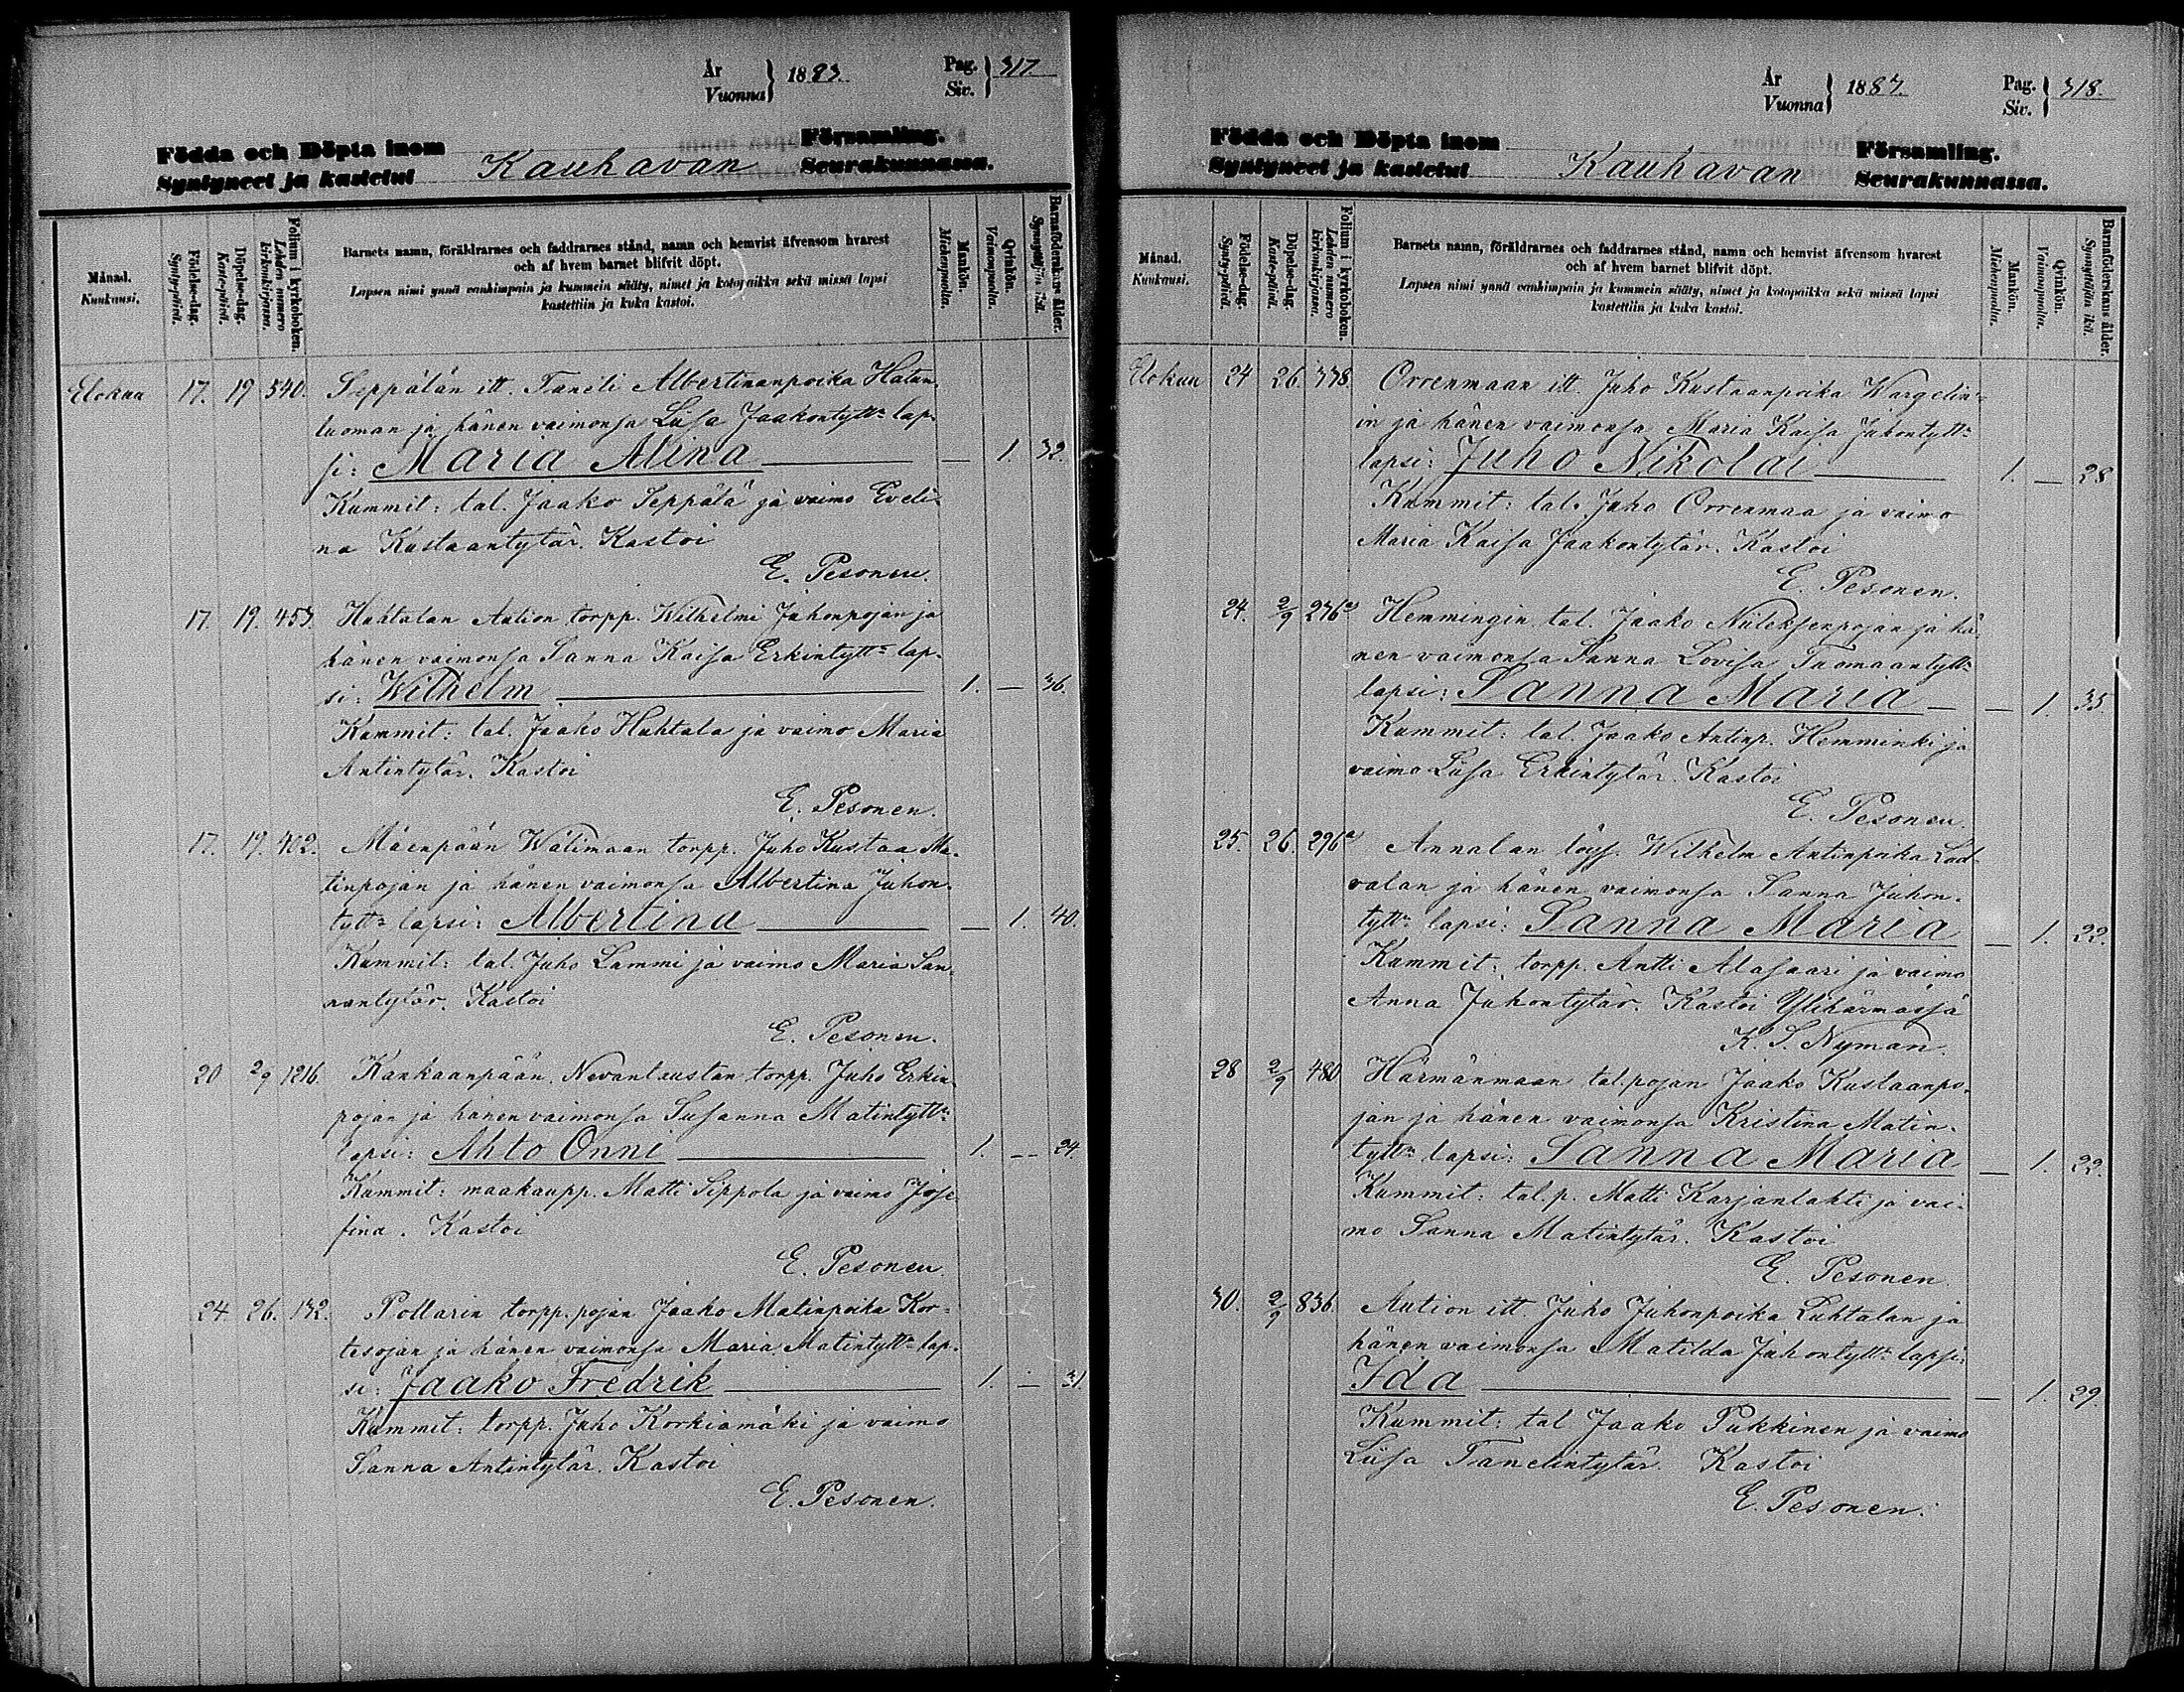 År
Vuonna } 1883.
Pag.
Siv. } 317.
Födda och Döpta inom
Syntyneet ja kastetut
Kauhavan
Församling.
Seurakunnassa.
Månad.
Kuukausi.
Födelse-dag.
Synty-päivä.
Döpelse-dag.
Kaste-päivä.
Folium i kyrkoboken.
Lehden numero kirkonkirjassa.
Barnets namn, föräldrarnes och faddrarnes stånd, namn och hemvist äfvensom hvarest
och af hvem barnet blifvit döpt.
Lapsen nimi ynnä vanhimpain ja kummein sääty, nimet ja kotopaikka sekä missä lapsi
kastettiin ja kuka kastoi.
Mankön.
Miehenpuolta.
Qvinkön.
Vaimonpuolta.
Barnaföderskans ålder.
Synnyttäjän ikä.
Elokuu 17. 19 540. Seppälän itt. Taneli Albertinanpoika Hatun-
luoman ja hänen vaimonsa Liisa Jaakontytt:n lap-
si: Maria Alina — — 1. 32.
Kummit: tal. Jaako Seppälä ja vaimo Eveli-
na Kustaantytär. Kastoi
E. Pesonen.
17. 19. 453. Huhtalan Aution torpp. Wilhelmi Juhonpojan ja
hänen vaimonsa Sanna Kaisa Erkintytt:n lap-
si: Wilhelm — 1. — 36.
Kummit: tal. Jaako Huhtala ja vaimo Maria
Antintytär. Kastoi
E. Pesonen.
17. 19. 402. Mäenpään Wälimaan torpp. Juho Kustaa Ma-
tinpojan ja hänen vaimonsa Albertina Juhon-
tytt:n lapsi: Albertina — — 1. 40.
Kummit: tal. Juho Lammi ja vaimo Maria San-
nantytär. Kastoi
E. Pesonen.
20 2/9 1216. Kankaanpään Nevanlaustan torpp. Juho Erkin-
pojan ja hänen vaimonsa Susanna Matintytt:n
lapsi: Ahto Onni — 1. — 24.
Kummit: maakaupp. Matti Sippola ja vaimo Jose-
fina. Kastoi
E. Pesonen.
24. 26. 132. Pollarin torpp. pojan Jaako Matinpoika Kor-
tesojan ja hänen vaimonsa Maria Matintytt:n lap-
si: Jaako Fredrik — 1. — 31.
Kummit: torpp. Juho Korkiamäki ja vaimo
Sanna Antintytär. Kastoi
E. Pesonen.
År
Vuonna } 1883.
Pag.
Siv. } 318.
Födda och Döpta inom
Syntyneet ja kastetut
Kauhavan
Församling.
Seurakunnassa.
Månad.
Kuukausi.
Födelse-dag.
Synty-päivä.
Döpelse-dag.
Kaste-päivä.
Folium i kyrkoboken.
Lehden numero kirkonkirjassa.
Barnets namn, föräldrarnes och faddrarnes stånd, namn och hemvist äfvensom hvarest
och af hvem barnet blifvit döpt.
Lapsen nimi ynnä vanhimpain ja kummein sääty, nimet ja kotopaikka sekä missä lapsi
kastettiin ja kuka kastoi.
Mankön.
Miehenpuolta.
Qvinkön.
Vaimonpuolta.
Barnaföderskans ålder.
Synnyttäjän ikä.
Elokuu 24 26. 338. Orrenmaan itt. Juho Kustaanpoika Wargelin-
in ja hänen vaimonsa Maria Kaisa Juhontytt:n
lapsi: Juho Nikolai — 1. — 28
Kummit: tal. Juho Orrenmaa ja vaimo
Maria Kaisa Jaakontytär. Kastoi
E. Pesonen.
24. 2/9 236 a) Hemmingin tal. Jaako Niileksenpojan ja hä-
nen vaimonsa Sanna Lovisa Tuomaantytt:n
lapsi: Sanna Maria — — 1. 35.
Kummit: tal. Jaako Antinp. Hemminki ja
vaimo Liisa Erkintytär. Kastoi
E. Pesonen.
25. 26. 296 a) Annalan löys. Wilhelm Antinpoika Lad-
valan ja hänen vaimonsa Sanna Juhon-
tytt:n lapsi: Sanna Maria — 1. 22.
Kummit: torpp. Antti Alasaari ja vaimo
Anna Juhontytär. Kastoi Ylihärmässä
K. S. Nyman.
28 2/9 480 Härmänmaan tal. pojan Jaako Kustaanpo-
jan ja hänen vaimonsa Kristina Matin-
tytt:n lapsi: Sanna Maria — 1. 22.
Kummit: tal. p. Matti Karjanlahti ja vai-
mo Sanna Matintytär. Kastoi
E. Pesonen.
30. 2/9 836. Aution itt. Juho Juhonpoika Luhtalan ja
hänen vaimonsa Matilda Juhontytt:n lapsi:
Ida — — 1. 29.
Kummit: tal Jaako Pukkinen ja vaimo
Liisa Tanelintytär. Kastoi
E. Pesonen.